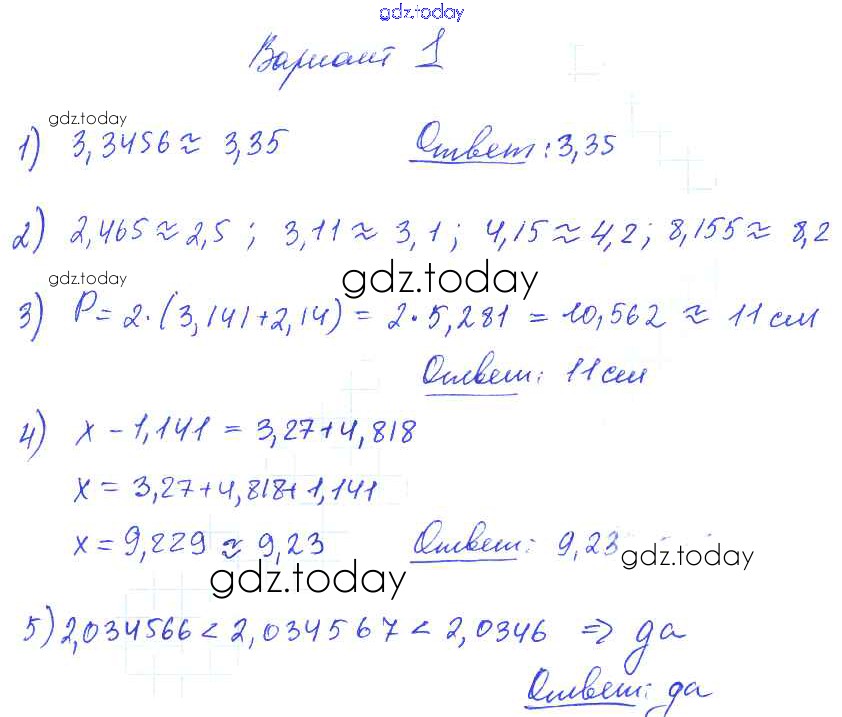 gdz.today
Вариант 1
gdz.today
1) 3,3456 ≈ 3,35 Ответ: 3,35
2) 2,465 ≈ 2,5 ; 3,11 ≈ 3,1 ; 4,15 ≈ 4,2 ; 8,155 ≈ 8,2
gdz.today
gdz.today
3) P = 2·(3,141+2,14) = 2·5,281 = 10,562 ≈ 11 см
Ответ: 11 см
4) x - 1,141 = 3,27+4,818
x = 3,27+4,818+1,141
x = 9,229 ≈ 9,23 Ответ: 9,23
gdz.today
gdz.today
5) 2,034566 < 2,034567 < 2,0346 ⇒ да
Ответ: да